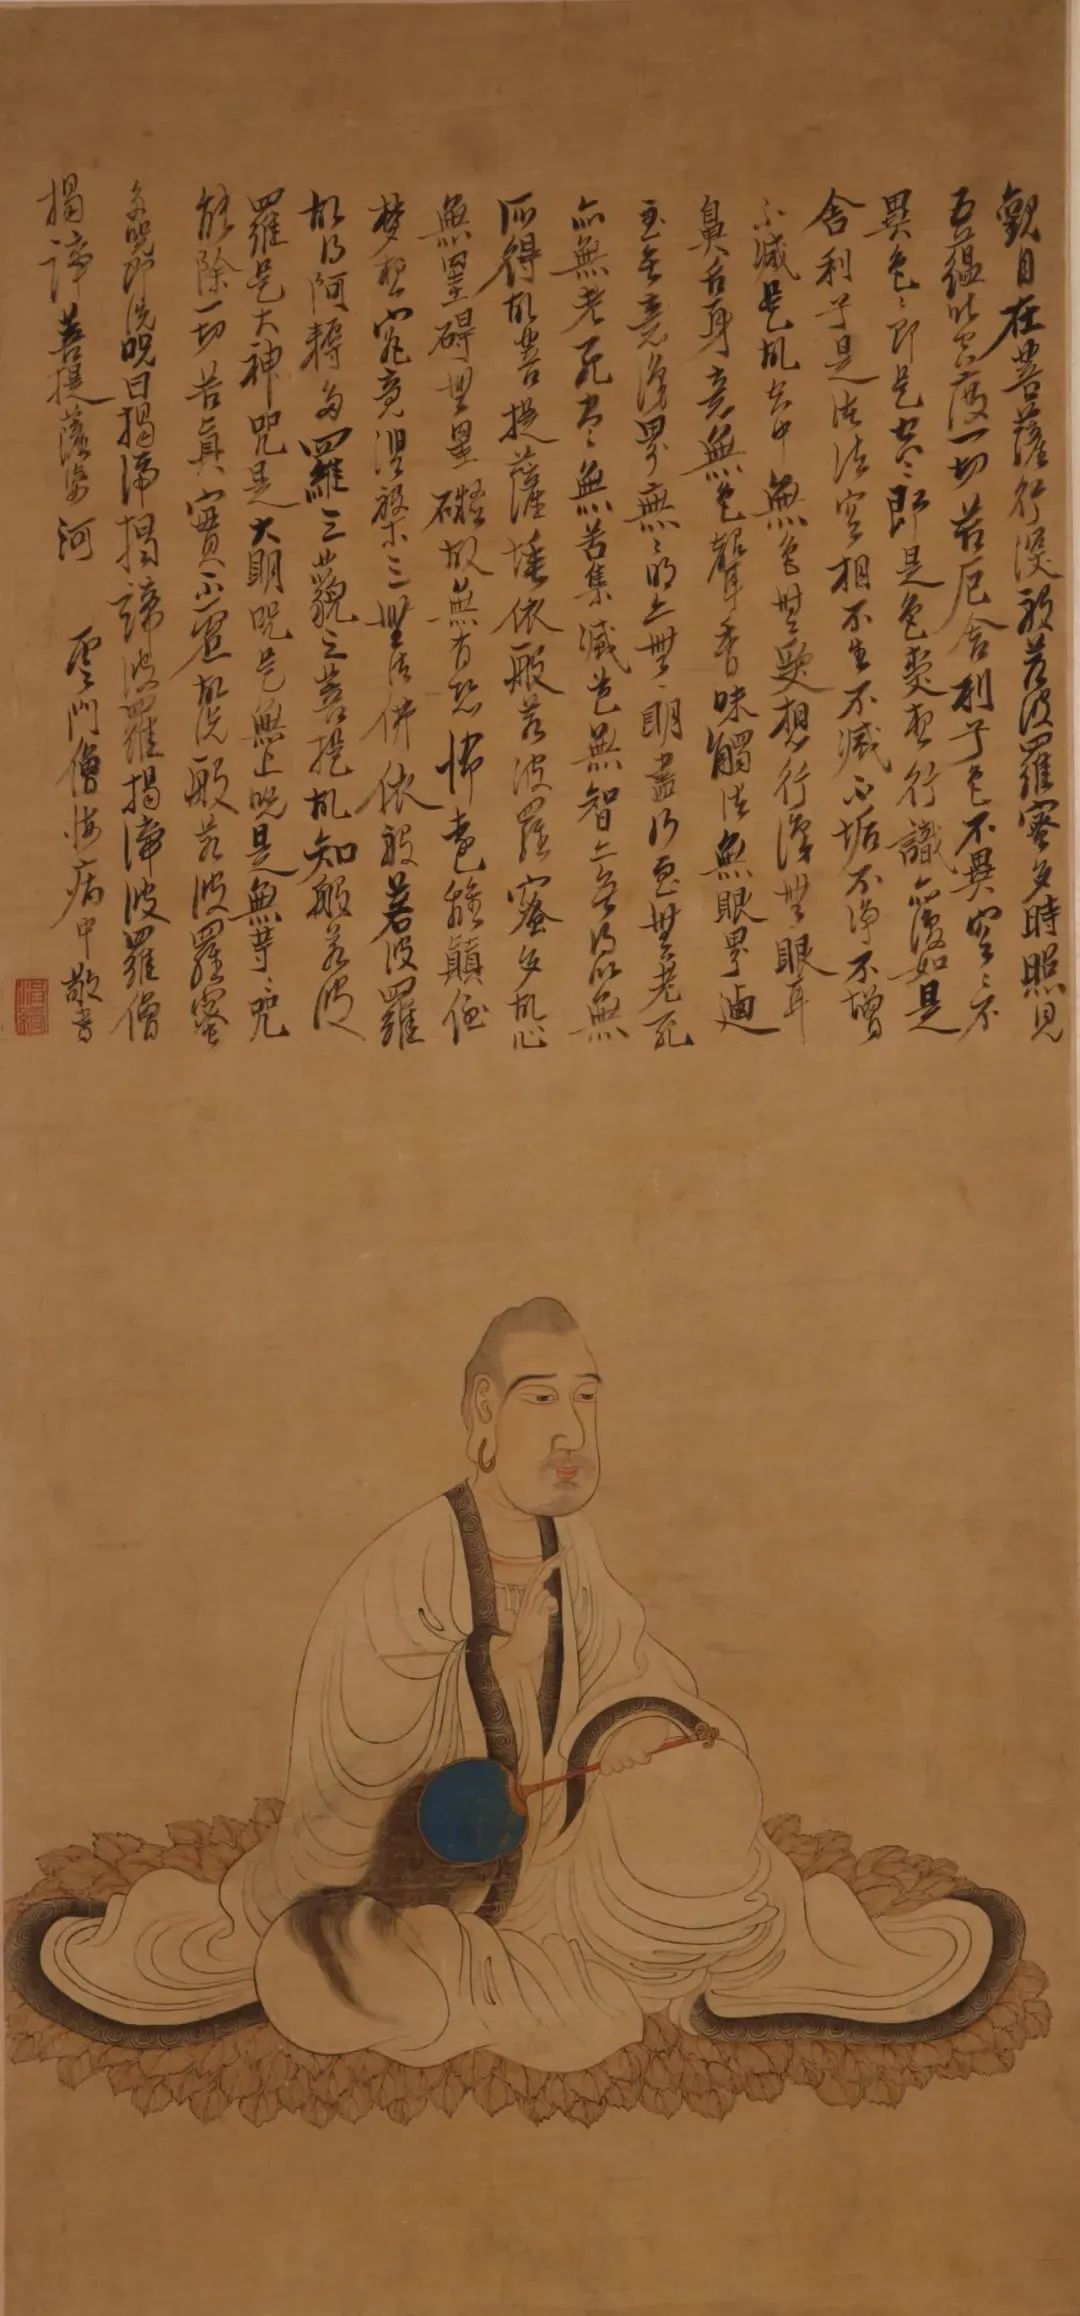 觀自在菩薩行深般若波羅蜜多時照見
五蘊皆空度一切苦厄舍利子色不異空〻不
異色〻即是空〻即是色受想行識亦復如是
舍利子是法法空相不生不滅不垢不淨不增
不減是故空中無色無受想行識無眼耳
鼻舌身意無色聲香味觸法無眼界迺
至無意識界無〻明亦無〻明盡乃至無老死
亦無老死盡〻無苦集滅道無智亦無得以無
所得故菩提薩埵依般若波羅蜜多故心
無罣碍無罣礙故無有恐怖遠離顛倒
夢想究竟涅槃三世諸佛依般若波羅
故得阿耨多羅三藐三菩提故知般若波
羅是大神呪是大明呪是無上呪是無等〻呪
能除一切苦真實不虛故說般若波羅蜜
多呪即說呪曰揭諦揭諦波羅揭諦波羅僧
揭諦菩提薩婆河 雲門僧悔病中敬書